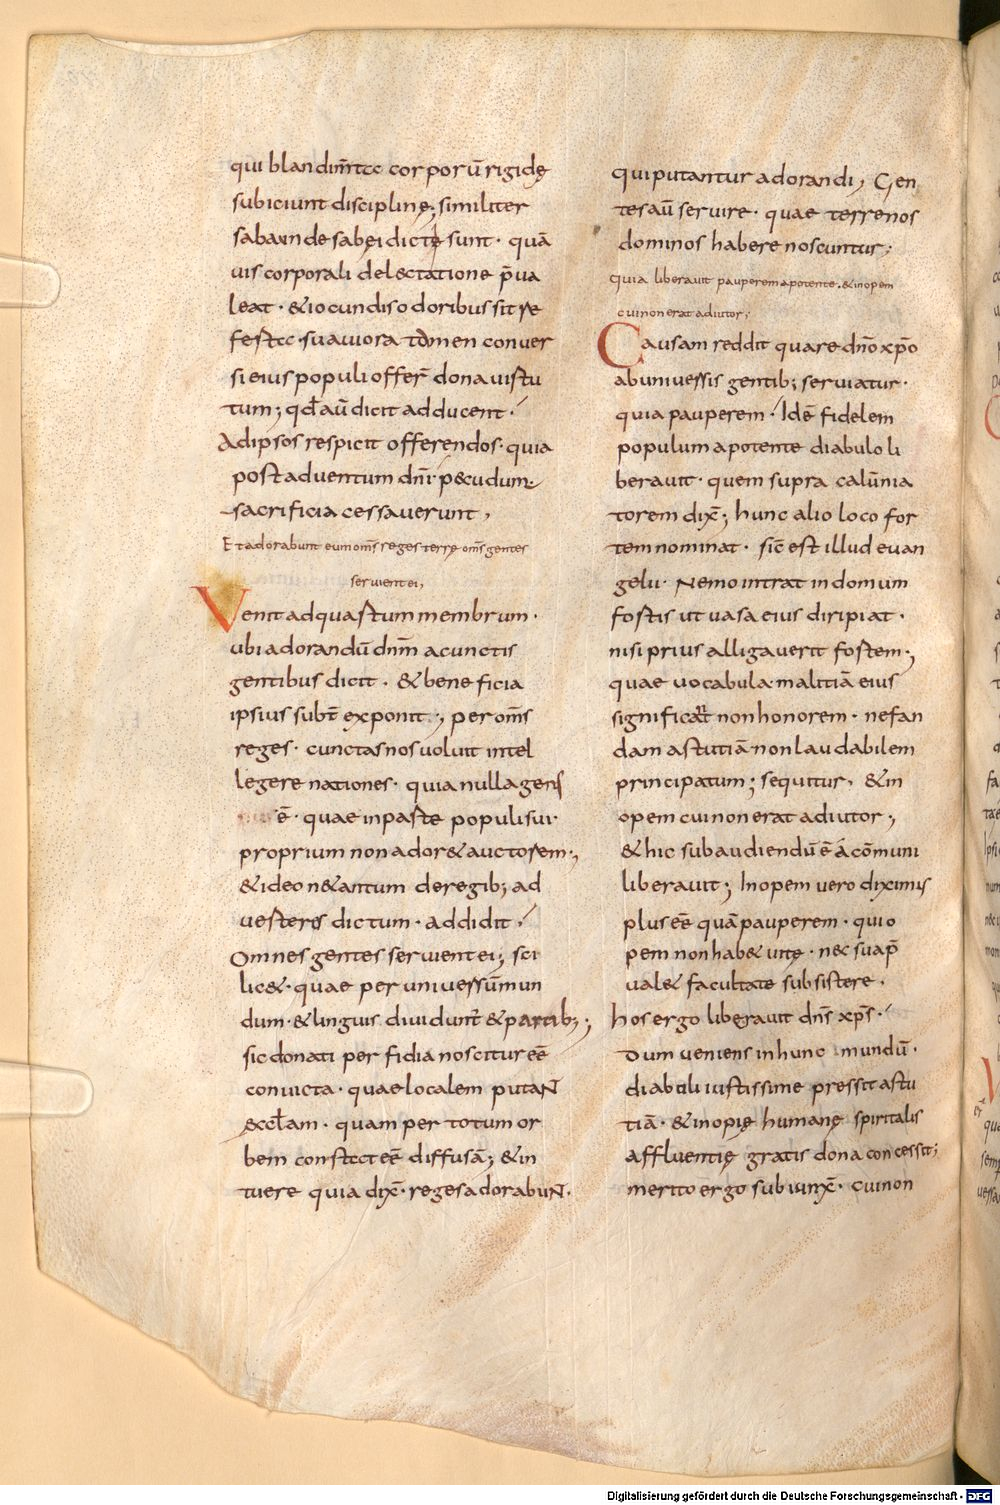 qui blandim̅tcc corporū rigidę
subiciunt discipline; similiter
saba inde sabei dicte sunt · quā
uis corporali delectatione p̄ua
leat · & iocundis odoribus sit re
fertcc · suauiora tamen conuer
si eius populi offer̄ dona uirtu
tum; qđ aū dicit adducent ·
Ad ipsos respicit offerendos · quia
post aduentum dn̄i pecudum
sacrificia cessauerunt,
Et adorabunt eum om̄s reges terrę om̄s gentes
seruient ei,
Venit ad quartum membrum ·
ubi adorandū dn̄m a cunctis
gentibus dicit · & beneficia
ipsius subt̄ exponit; per om̄s
reges · cunctas nos uoluit intel
legere nationes · quia nulla gens
ē · quae in parte populi sui
proprium non ador& auctorem;
& ideo n& antum de regib; ad
uesteres dictum · addidit ·
Omnes gentes seruient ei; sci
lic& · quae per uniuersū mun
dum · & linguis diuidunt̄ & partib;;
sic donati per fidia noscitur eē
conuicta · quae localem putaNt
ęccl̄am · quam per totum or
bem constcct eē diffusā; & in
tuere quia dix̄ · reges adorabuNt ·
qui putantur adorandi, Gen
tes aū seruire · quae terrenos
dominos habere noscuntur;
quia liberauit pauperem a potente · & inopem
cui non erat adiutor;
Causam reddit quare dn̄o xp̄o
ab uniuersis gentib; seruiatur ·
quia pauperem · Idē fidelem
populum a potente diabulo li
berauit · quem supra calūnia
torem dix̄; hunc alio loco for
tem nominat · sic̄ est illud euan
gelii · Nemo intrat in domum
fortis ut uasa eius diripiat ·
nisi prius alligauerit fortem;
quae uocabula malitiā eius
significant non honorem · nefan
dam astutiā non laudabilem
principatum; sequitur, & in
opem cui non erat adiutor;
& hic subaudiendū ē á cōmuni
liberauit; Inopem uero diximus
plus eē quā pauperem · qui o
pem non hab& uitę · nec sua p̄
ual& facultate subsistere ·
hos ergo liberauit dn̄s xp̄s ·
Dum ueniens in hunc mundū ·
diabuli iustissime pressit astu
tiā · & inopię humanę spiritalis
affluentię gratis dona concessit;
merito ergo subiunx̄ · cui non
Digitalisierung gefördert durch die Deutsche Forschungsgemeinschaft - DFG